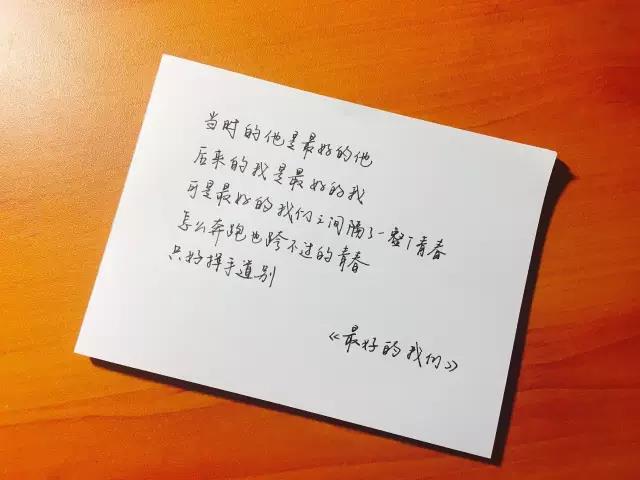 当时的他是最好的他
后来的我是最好的我
可是最好的我们之间隔了一整个青春
怎么奔跑也跨不过的青春
只好挥手道别
《最好的我们》